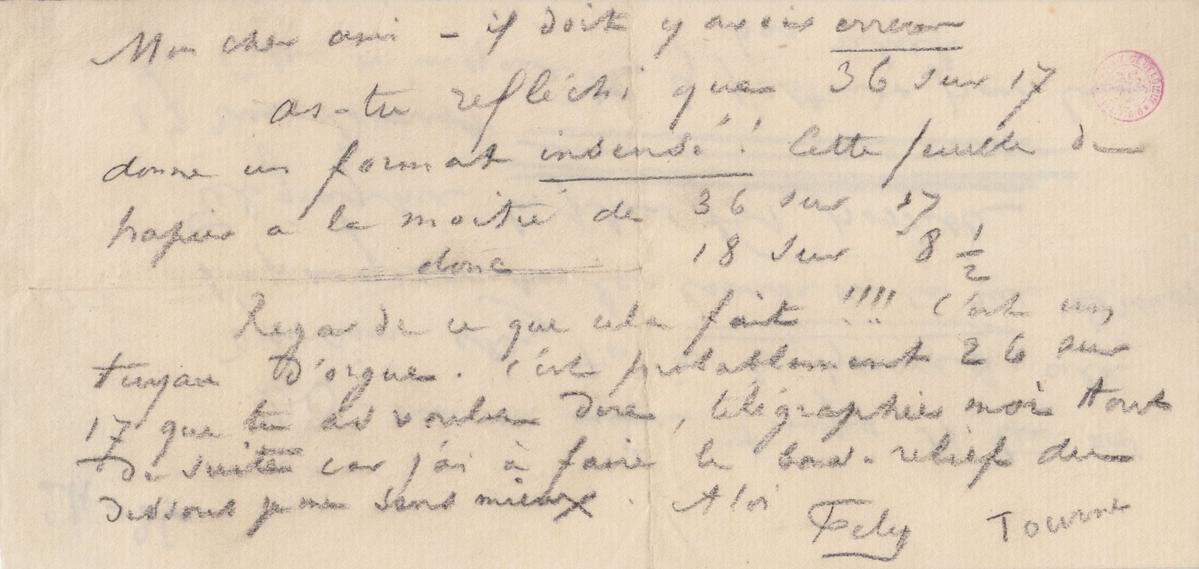 Mon cher ami – il doit y avoir erreur
as-tu refléchi que 36 sur 17
donne un format insensé!! Cette feuille de
papier a la moitié de 36 sur 17
donc 18 sur 8 1/2
Regarde ce que cela fait !!!! c'est un
tuyau d'orgue. C'est probablement 26 sur
17 que tu as voulu dire, télégraphies moi tout
de suite car j'ai à faire le bas-relief du
dessous je me sens mieux. A toi
Fély Tourne